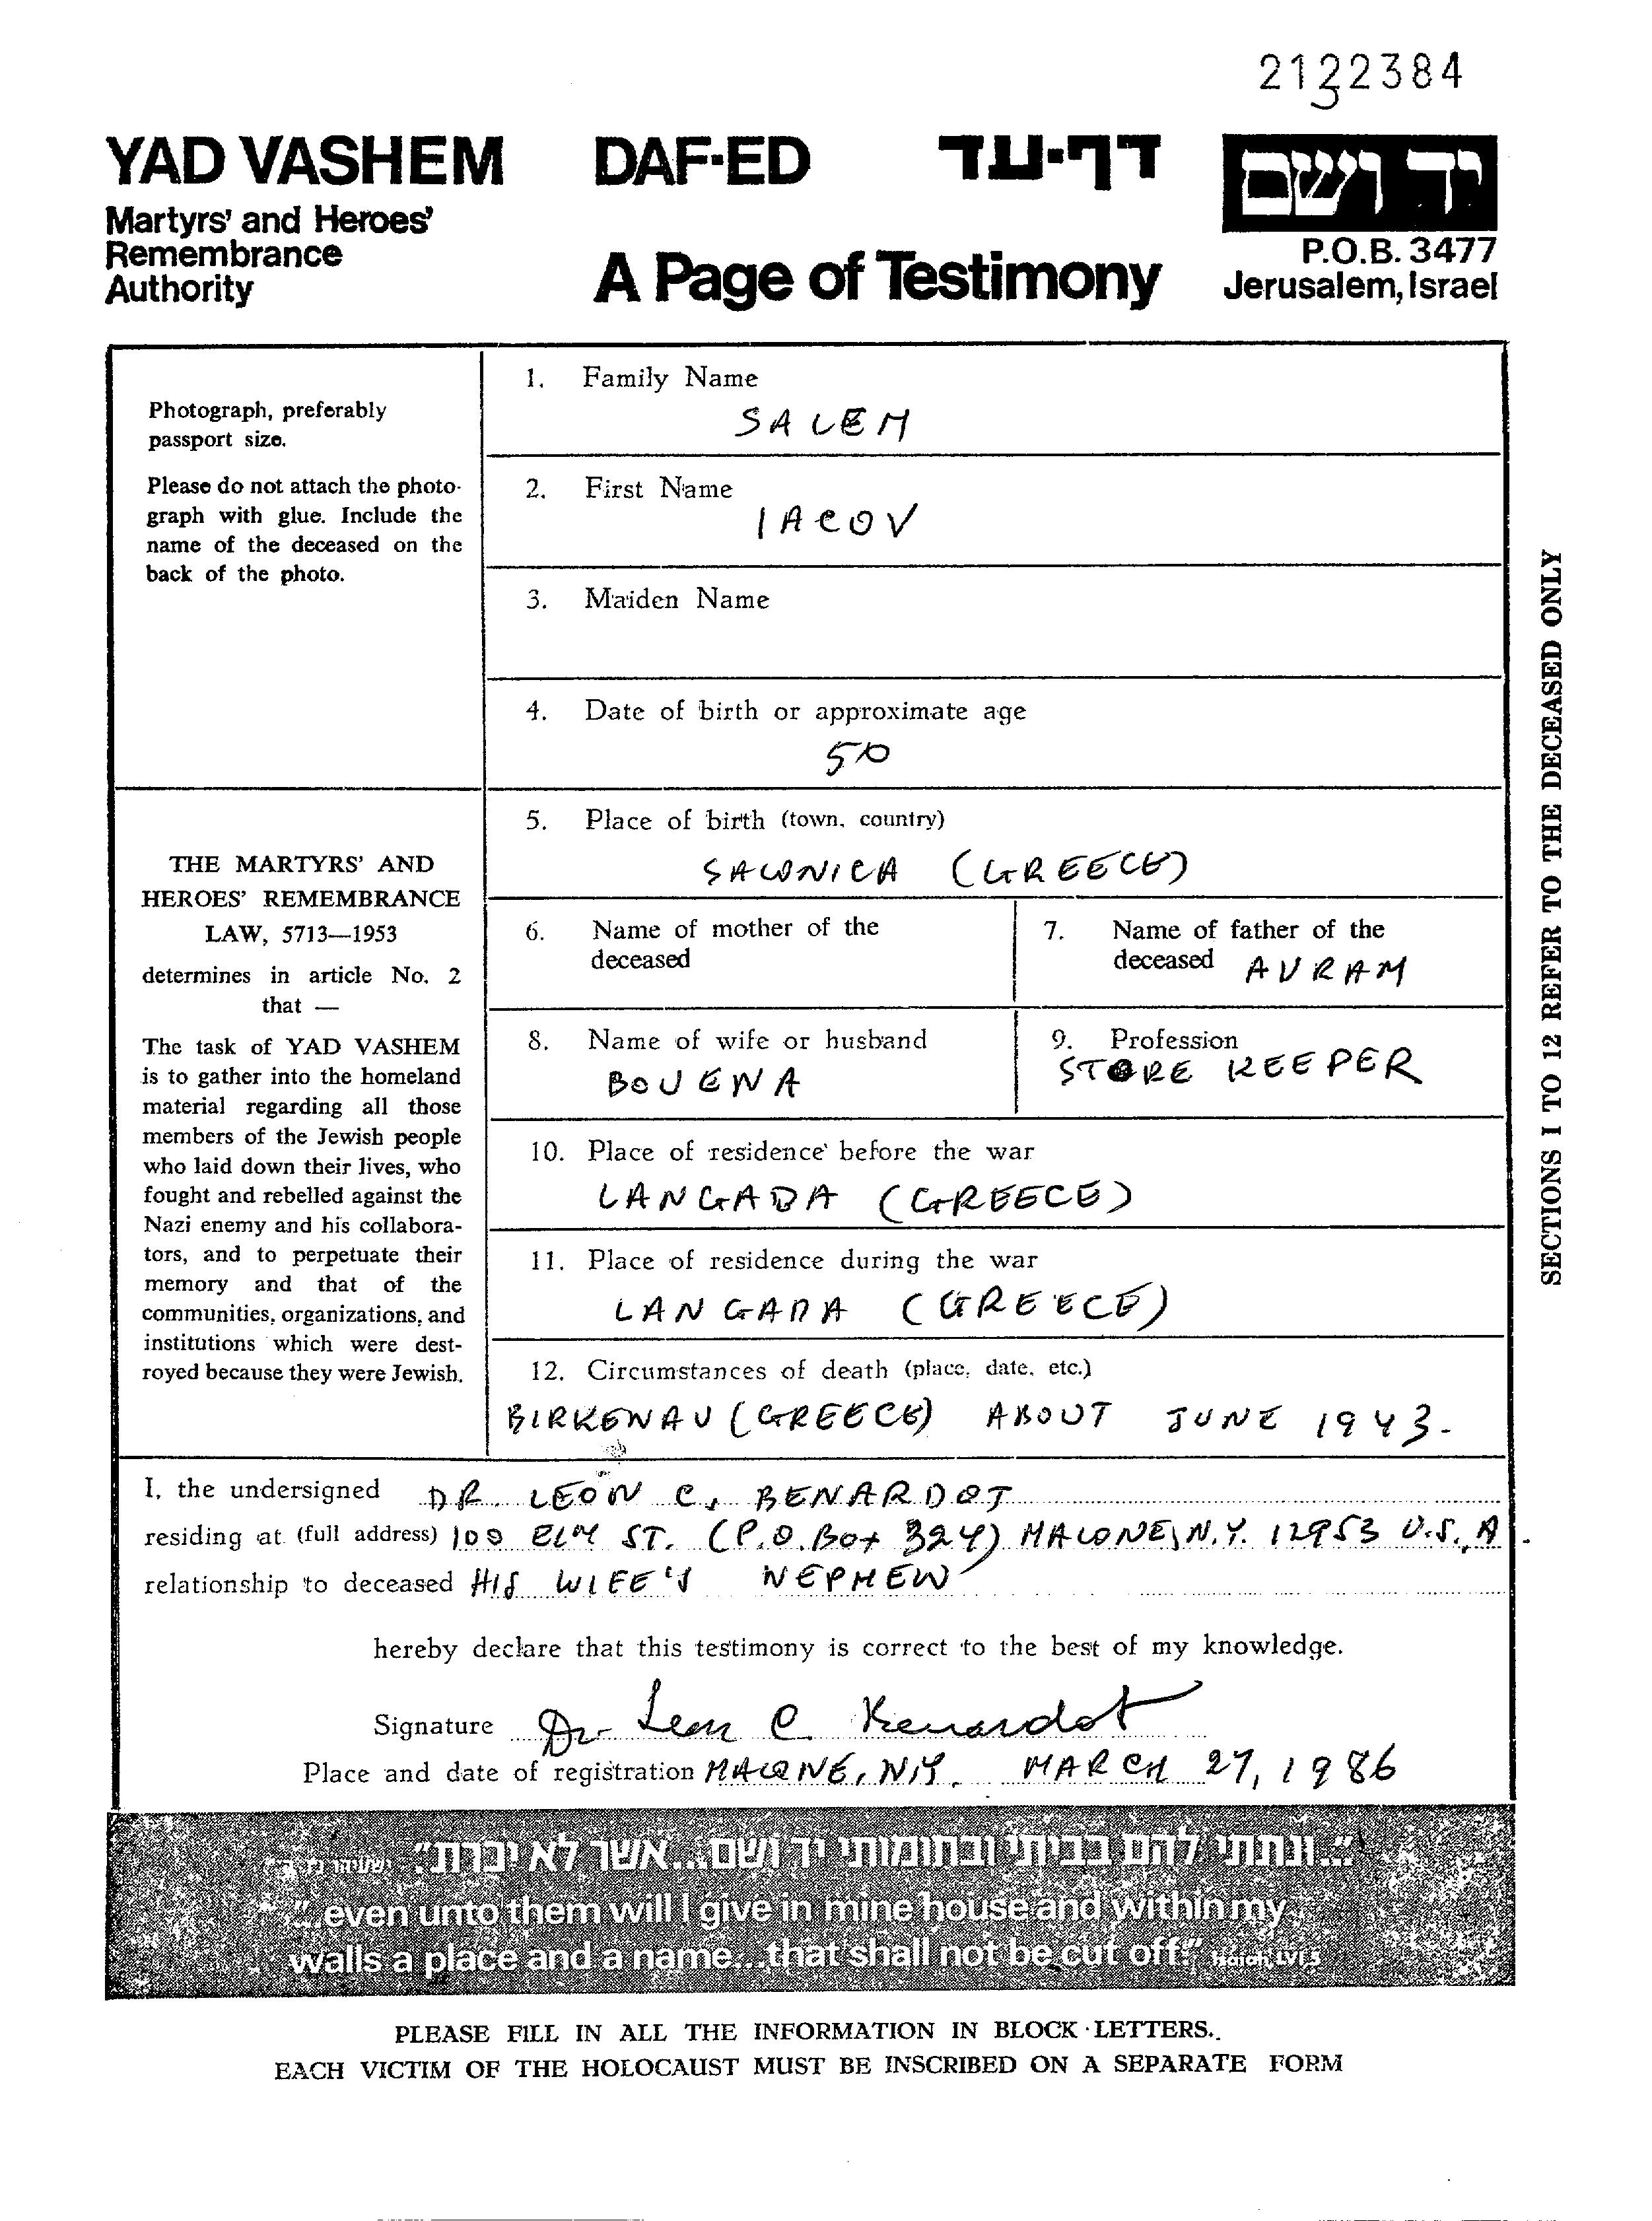 2132384
YAD VASHEM DAF-ED דף-עד יד ושם
Martyrs' and Heroes'
Remembrance
Authority
A Page of Testimony
P.O.B. 3477
Jerusalem, Israel
Photograph, preferably
passport size.
Please do not attach the photo-
graph with glue. Include the
name of the deceased on the
back of the photo.
THE MARTYRS' AND
HEROES' REMEMBRANCE
LAW, 5713—1953
determines in article No. 2
that —
The task of YAD VASHEM
is to gather into the homeland
material regarding all those
members of the Jewish people
who laid down their lives, who
fought and rebelled against the
Nazi enemy and his collabora-
tors, and to perpetuate their
memory and that of the
communities, organizations, and
institutions which were dest-
royed because they were Jewish.
1. Family Name
SALEM
2. First Name
IACOV
3. Maiden Name
4. Date of birth or approximate age
50
5. Place of birth (town, country)
SALONICA (GREECE)
6. Name of mother of the
deceased
7. Name of father of the
deceased AVRAM
8. Name of wife or husband
BOUENA
9. Profession
STORE KEEPER
10. Place of residence before the war
LANGADA (GREECE)
11. Place of residence during the war
LANGADA (GREECE)
12. Circumstances of death (place, date, etc.)
BIRKENAU (GREECE) ABOUT JUNE 1943.
SECTIONS 1 TO 12 REFER TO THE DECEASED ONLY
I, the undersigned DR. LEON C. BENARDOT
residing at (full address) 100 ELM ST. (P.O. Box 324) MALONE, N.Y. 12953 U.S.A.
relationship to deceased HIS WIFE'S NEPHEW
hereby declare that this testimony is correct to the best of my knowledge.
Signature Dr Leon C Benardot
Place and date of registration MALONE, N.Y. MARCH 27, 1986
"...ונתתי להם בביתי ובחומותי יד ושם...אשר לא יכרת."
"...even unto them will I give in mine house and within my
walls a place and a name...that shall not be cut off." Isaiah, LVI 5
PLEASE FILL IN ALL THE INFORMATION IN BLOCK LETTERS.
EACH VICTIM OF THE HOLOCAUST MUST BE INSCRIBED ON A SEPARATE FORM